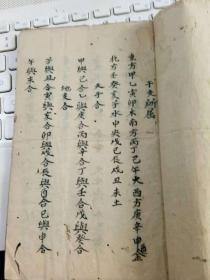 干支所属
東方甲乙寅卯木南方丙丁巳午火西方庚辛申酉金
北方壬癸亥子水中央戊己辰戌丑未土
天干合
甲與己合乙與庚合丙與辛合丁與壬合戊與癸合
地支合
子與丑合寅與亥合卯與戌合辰與酉合巳與申合
午與未合